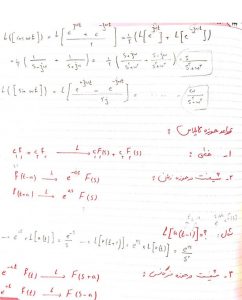 L{cos ωt} = L[(e^{jωt} + e^{-jωt})/2] = 1/2 (L[e^{jωt}] + L[e^{-jωt}])
= 1/2 (1/(s-jω) + 1/(s+jω)) = 1/2 (s+jω+s-jω)/(s²+ω²) = s/(s²+ω²)
L{sin ωt} = L[(e^{jωt} - e^{-jωt})/2j] = ... = ω/(s²+ω²)
قواعد حوزه لاپلاس:
۱- خطی:
c₁f₁ + c₂f₂ —L→ c₁F₁(s) + c₂F₂(s)
۲- شیفت در حوزه زمان:
f(t-a) —L→ e^{-as} F(s)
f(t+a) —L→ e^{as} F(s)
مثال: L[u(t-1)] = ?
۳- شیفت در حوزه فرکانس:
e^{-at} f(t) —L→ F(s+a)
e^{at} f(t) —L→ F(s-a)